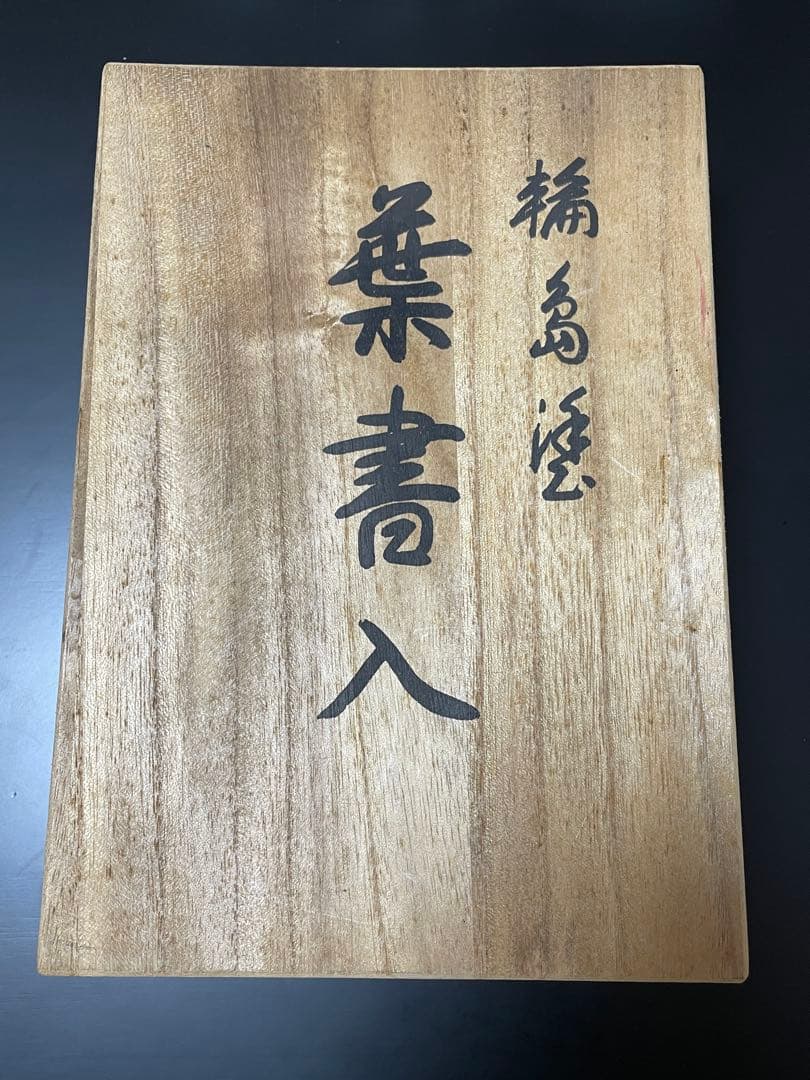 輪島塗
葉書入